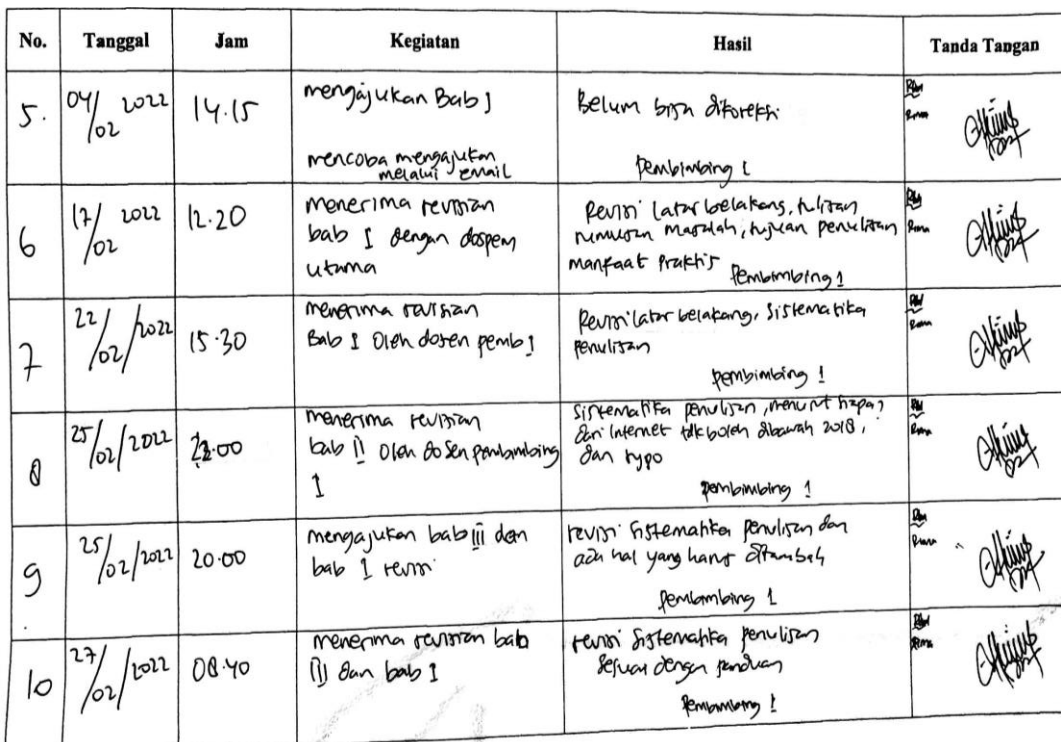 No. Tanggal Jam Kegiatan Hasil Tanda Tangan
5. 04/02 2022 14.15 mengajukan Bab I Belum bisa dikoreksi
mencoba mengajukan
melalui email
Pembimbing 1
6 17/02 2022 12.20 menerima revisian
bab I dengan dospem
utama
Revisi latar belakang, tulisan
rumusan masalah, tujuan penulisan
manfaat praktis
Pembimbing 1
7 22/02/2022 15.30 menerima revisian
Bab I oleh dosen pemb I
Revisi latar belakang, sistematika
penulisan
pembimbing 1
8 25/02/2022 22.00 menerima revisian
bab II oleh dosen pembimbing
I
sistematika penulisan, menurut
dari internet tdk boleh dibawah 2018,
dan typo
pembimbing 1
9 25/02/2022 20.00 mengajukan bab III dan
bab I revisi
revisi sistematika penulisan dan
ada hal yang harus ditambah
pembimbing 1
10 27/02/2022 08.40 menerima revisian bab
III dan bab I
revisi sistematika penulisan
sesuai dengan panduan
Pembimbing 1